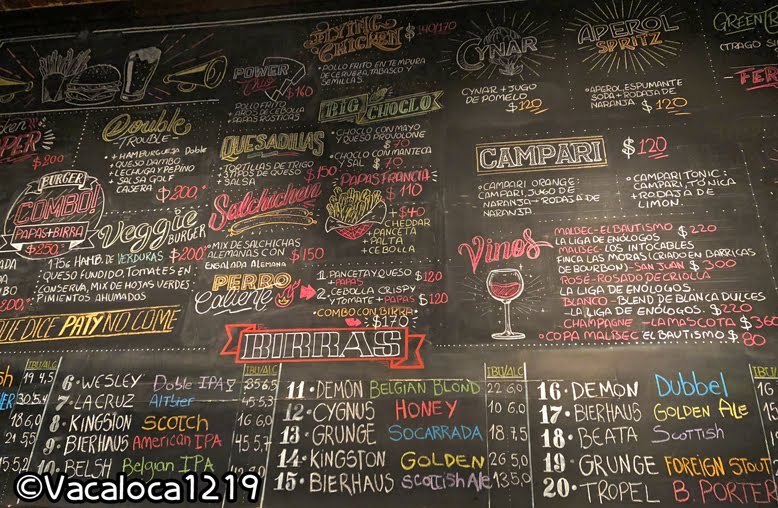 POWER
$160
POLLO FRITO
ARITAS RÚSTICAS
FLYING
CHICKEN
$140/170
POLLO FRITO EN TEMPURA
DE CERVEZA, TABASCO Y
SEMILLAS
BIG CHOCLO
CHOCLO CON MAYO
Y QUESO PROVOLONE
$70
CHOCLO CON MANTECA
Y SAL $70
PAPAS FRANCIA
$110
+$40
CHEDDAR
PANCETA
+ PALTA
+ CEBOLLA
$200
Double
TROUBLE
+ HAMBURGUEJA Doble
QUESO DAMBO
LECHUGA Y PEPINO
SALSA GOLF
CASERA
$200
QUESADILLAS
TORTILLAS DE TRIGO
TIPOS DE QUESO
+ SALSA
$150
BURGER
COMBO!
PAPAS+BIRRA
$250
Veggie
BURGER
175g HAMB. DE VERDURAS
$200
QUESO FUNDIDO, TOMATES EN
CONSERVA, MIX DE HOJAS VERDES,
PIMIENTOS AHUMADOS
Salchichen
MIX DE SALCHICHAS
ALEMANAS CON
ENSALADA ALEMANA
$150
PERRO
Caliente
1 PANCETA Y QUESO
+PAPAS
$120
2 CEBOLLA CRISPY
Y TOMATE +PAPAS $120
COMBO CON BIRRA
$170
QUE DICE PATY NO COME
CYNAR
CYNAR + JUGO
DE POMELO
$120
APEROL
SPRITZ
APEROL ESPUMANTE
SODA + RODAJA DE
NARANJA $120
(TRAGO
CAMPARI
$120
CAMPARI ORANGE:
CAMPARI, JUGO DE
NARANJA + RODAJA DE
NARANJA.
CAMPARI TONIC:
CAMPARI, TÓNICA
+ RODAJA DE
LIMON.
Vinos
MALBEC - EL BAUTISMO $220
LA LIGA DE ENÓLOGOS
MALBEC LOS INTOCABLES
FINCA LAS MORAS (CRIADO EN BARRICAS
DE BOURBON) - SAN JUAN $300
ROSÉ - ROSADO DE CRIOLLA
LA LIGA DE ENÓLOGOS
BLANCO - BLEND DE BLANCA DULCES
-LA LIGA DE ENÓLOGOS. $220
CHAMPAGNE - LA MASCOTA $360
COPA MALBEC EL BAUTISMO $80
BIRRAS
IBU/ALC
19 4,5
18 6,0
21 5,5
15
IBU/ALC
6· WESLEY Doble IPA
7· LA CRUZ Altbier
8· KINGSTON SCOTCH
9· BIERHAUS American IPA
10· BELSH Belgian IPA
16 6,0
IBU/ALC
11· DEMON BELGIAN BLOND
22 6,0
12· CYGNUS HONEY
10 6,0
13· GRUNGE SOCARRADA
18 7,5
14· KINGSTON GOLDEN
26 5,0
15· BIERHAUS Scottish Ale
13 5,0
16· DEMON Dubbel
17· BIERHAUS GOLDEN Ale
18· BEATA Scottish
19· GRUNGE FOREIGN STOUT
20· TROPEL B. PORTER
©Vacaloca1219